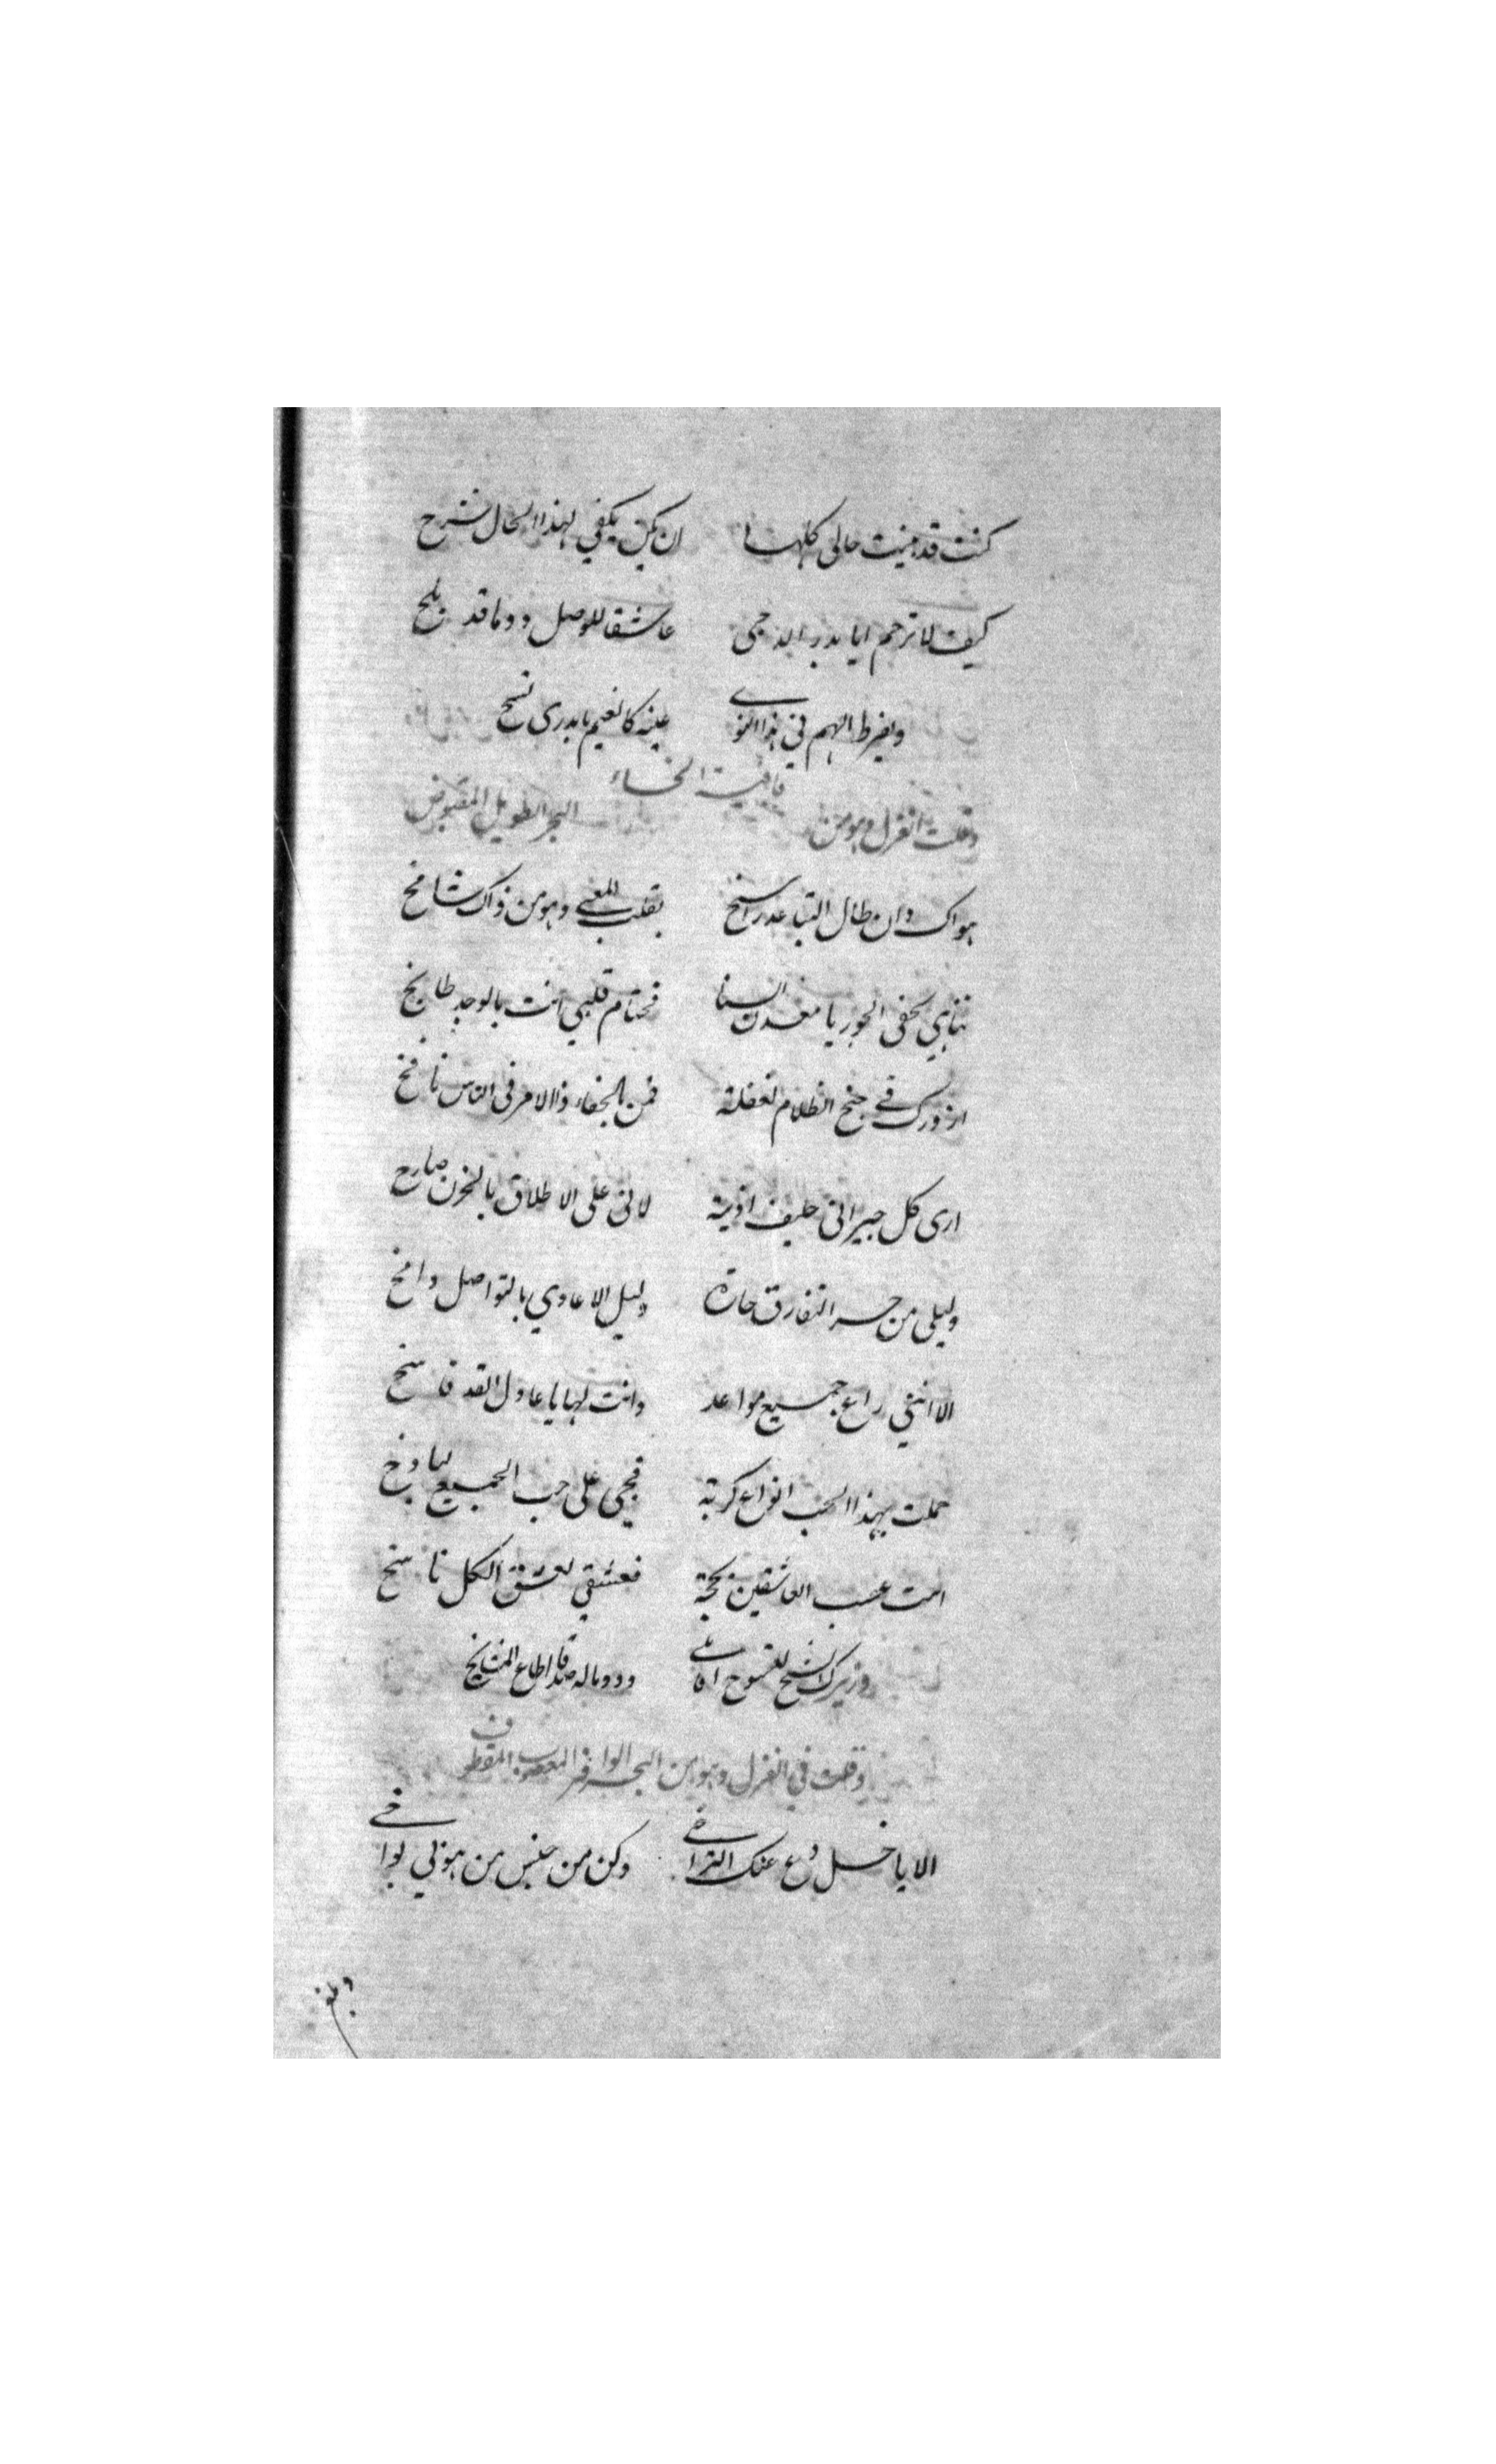 كنت قد بينت حالى كلها ان يكن يكفي لهذا الحال شرح
كيف لا ترحم ايا بدر الدجى عاشقا للوصل دوما قد يلح
وبفرط الهم في هذا النوى عينه كالغيم يا بدرى تسح
قافية الخاء
وقلت الغزل وهو من البحر الطويل المقبوض
هواك وان طال التباعد راسخ بقلب المعنى وهو من ذاك شامخ
تناهي بحفى الجور يا معدن السنا فحتام قلبي انت بالوجد طابخ
ازورك في جنح الظلام لغفلة فمن بالجفاء ذا الامر فى الناس نافخ
ارى كل جيرانى حليف اذية لانى على الاطلاق بالحزن صارخ
وليلى من حر التفارق حارة وليل الاعادي بالتواصل دامخ
الا اننى راع جميع مواعد وانت لها يا عادل القد فاسخ
حملت بهذا الحب انواع كربة فحبى على حب الجميع لباذخ
امت عصب العاشقين بحجة فعشقي لعشق الكل ناسخ
وزيرك الشيخ للفتوح ودوما له صدقا اطاع المشايخ
وقلت في الغزل وهو من البحر الوافر المعصوب المقطوف
الا يا خل دع عنك التراخي وكن من جنس من هو لى يواخي